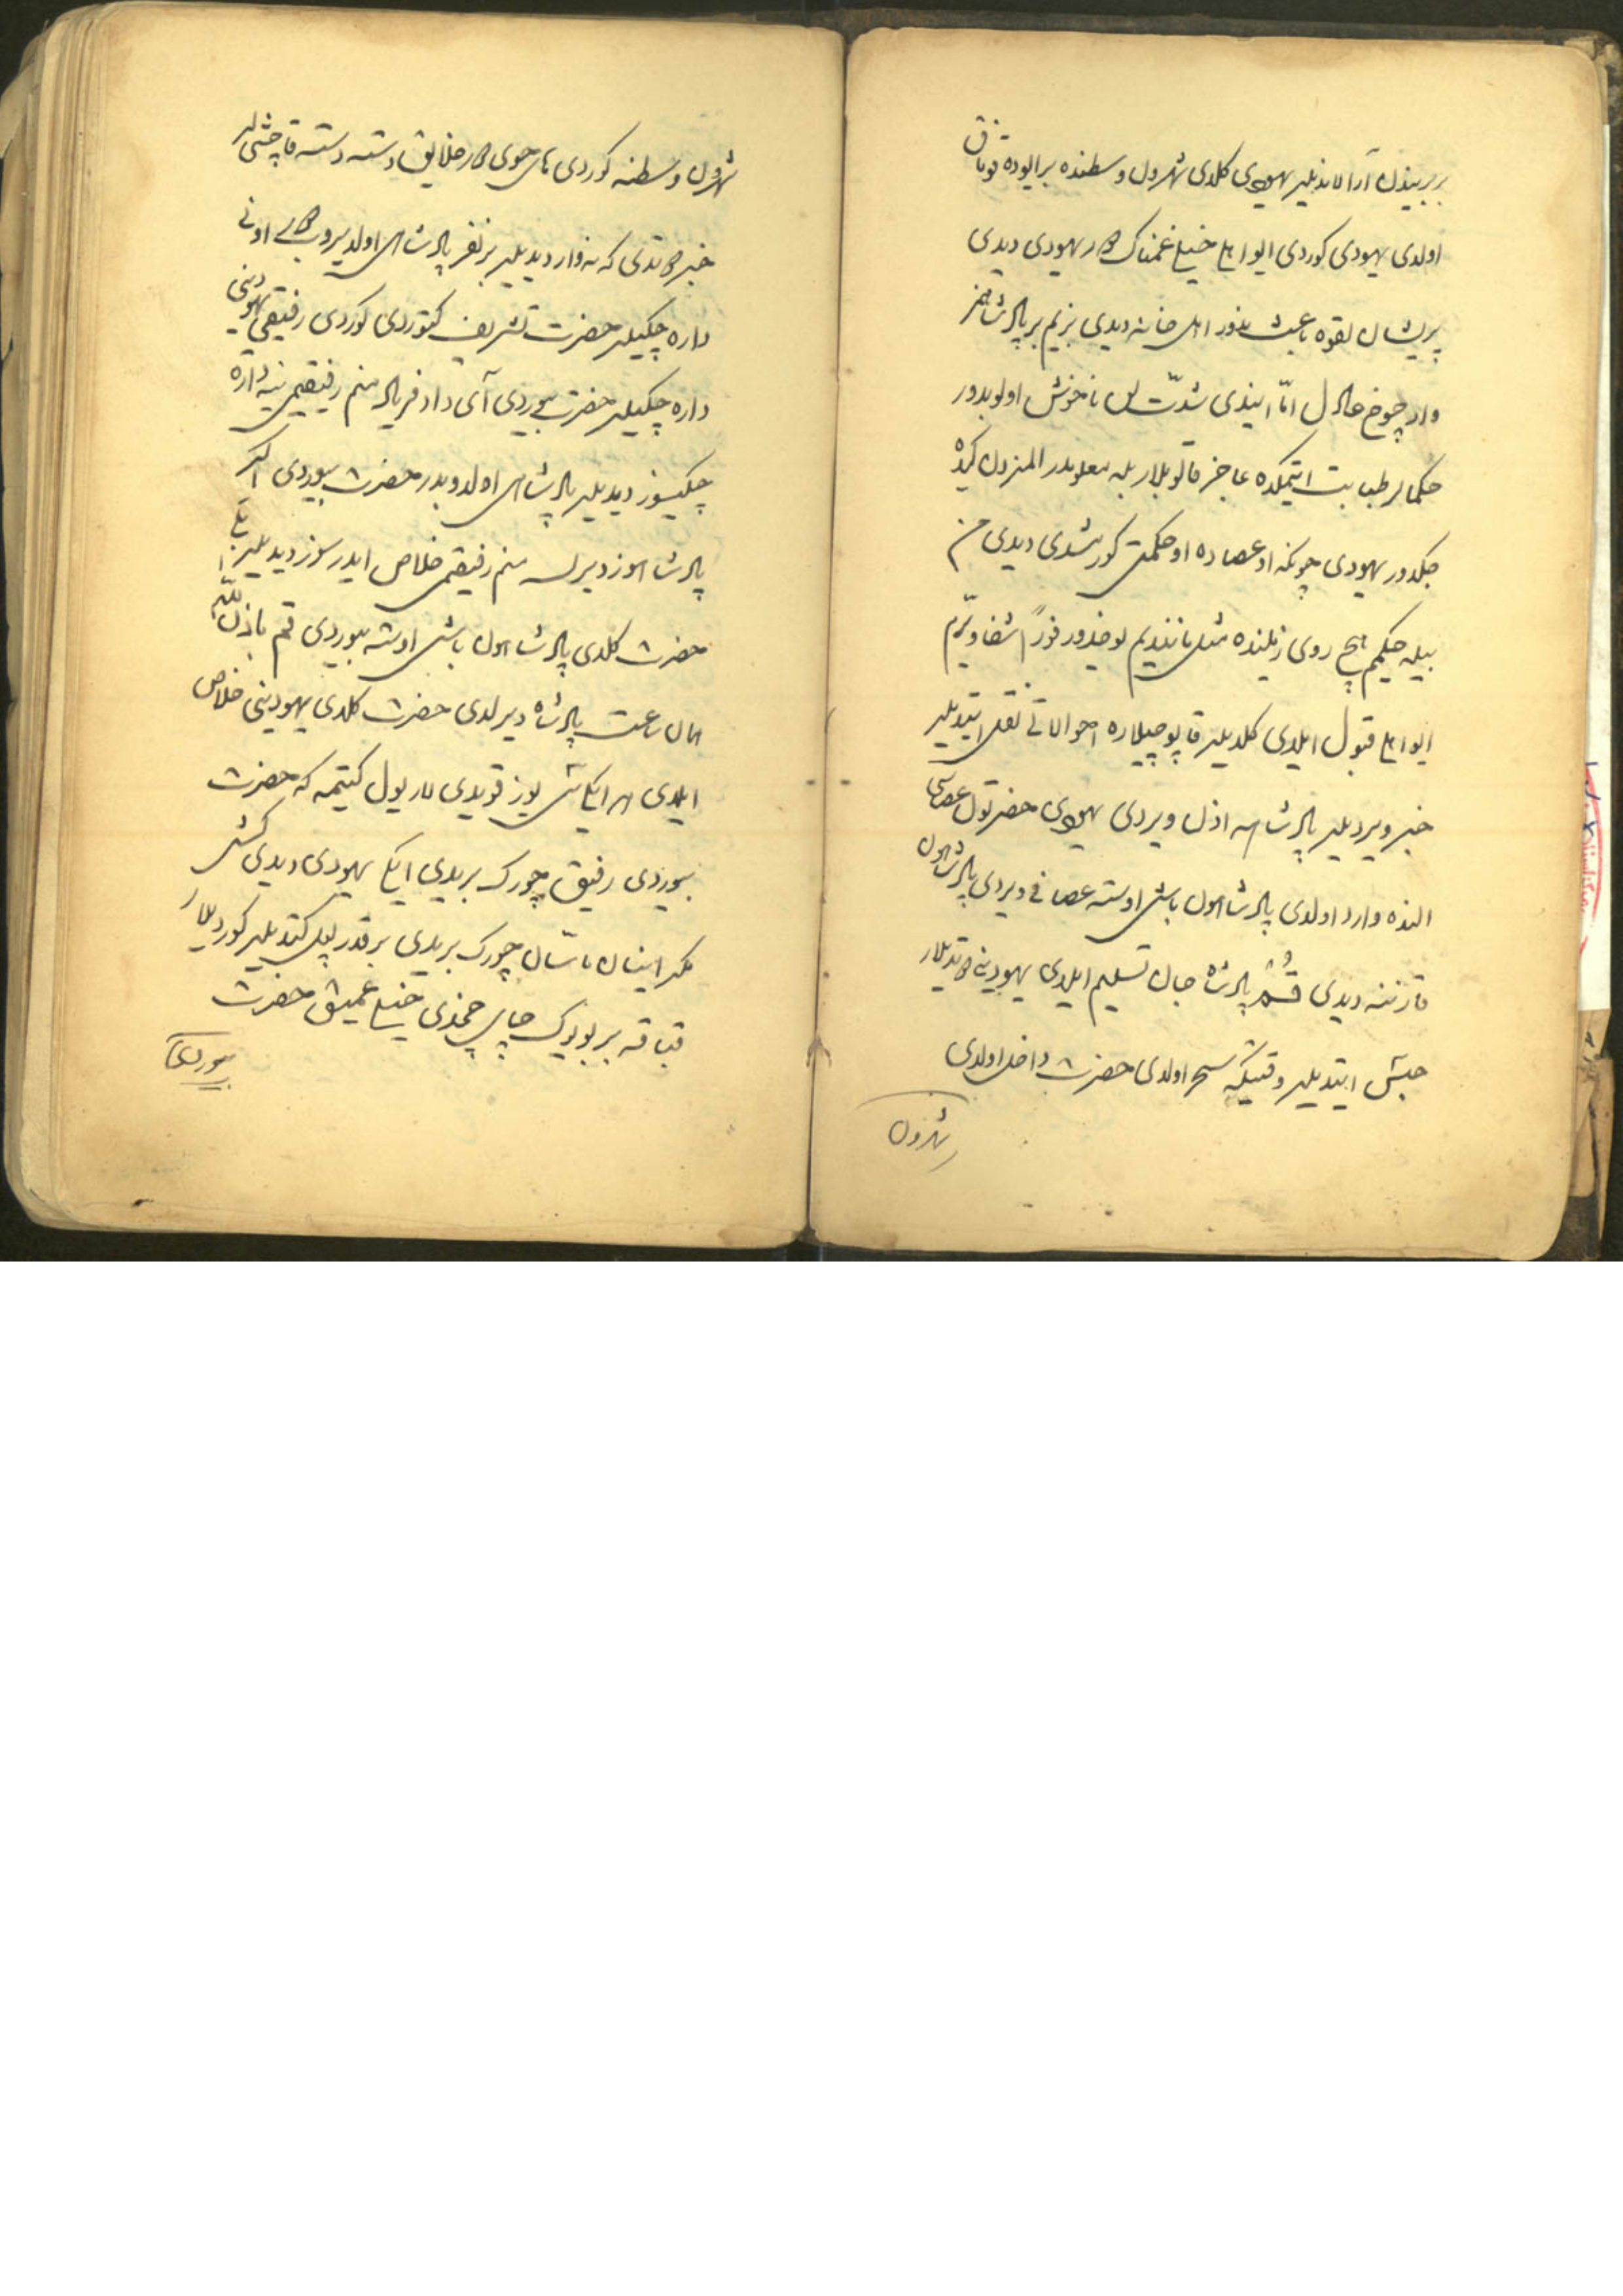 بربریندن آرالاندیلر یهودی کلدی شهرون وسطنده بر ایوده قوناق
اولدی یهودی کوردی ایو اهلی خیلی غمناک دیلر یهودی دیدی
پریشان لقوه باعث ندور اهل خانه دیدی بزیم بر پادشاهمز
وار چوخ عادل امّا ایندی شدّت لن ناخوش اولوبدور
حکمالر طبابت ایتمکده عاجز قالوبلار بله معلومدر المزدن کیده
جکدور یهودی چونکه او عصاده او حکمتی کورمشدی دیدی من
بیله حکیمم هیچ روی زمینده مثل مانندیم یوخدور فوراً شفا ویررم
ایو اهلی قبول ایلدی کلدیلر قاپوچیلاره احوالاتی نقل ایتدیلر
خبر ویردیلر پادشاهه اذن ویردی یهودی حضرتون عصاسی
النده وارد اولدی پادشاهون باشی اوسته عصانی ویردی پادشاهون
قارننه دیدی قُمْ پادشاه جان تسلیم ایلدی یهودینی توتدیلار
حبس ایتدیلر وقتیکه سحر اولدی حضرت داخل اولدی
شهرون
شهرون وسطنه کوردی های هوی دور خلایق دسته دسته قاچیشیلر
خبر توتدی که نه وار دیدیلر بر نفر پادشاهی اولدیروب دی اونی
داره چکیلر حضرت تشریف کتوردی کوردی رفیقی یهودینی
داره چکیلر حضرت بیوردی آی داد فریاد منم رفیقیمی نیه داره
چکیسوز دیدیلر پادشاهی اولدوبدر حضرت بیوردی اکر
پادشاهوز دیرلسه منم رفیقمی خلاص ایدرسوز دیدیلر بلی
حضرت کلدی پادشاهون باشی اوسته بیوردی قم باذن اللّه
همان ساعت پادشاه دیرلدی حضرت کلدی یهودینی خلاص
ایلدی هر ایکیسی یوز قویدی لار یول کیتمه که حضرت
بیوردی رفیق چورک بریدی ایکی یهودی دیدی کیشی
مکر اینان ماسّان چورک بریدی بر قدر یول کتدیلر کوردیلر
قباقه بر بویوک چای چخدی خیلی عمیق حضرت
بیوردی